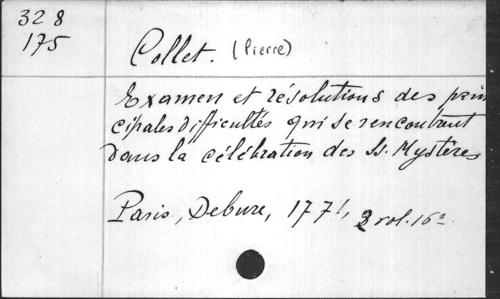 328
175
Collet. (Pierre)
Examen et résolutions des prin
cipales difficultés qui se rencontrent
dans la célébration des SS. Mystères
Paris, Debure, 1771, 2 vol. 16º